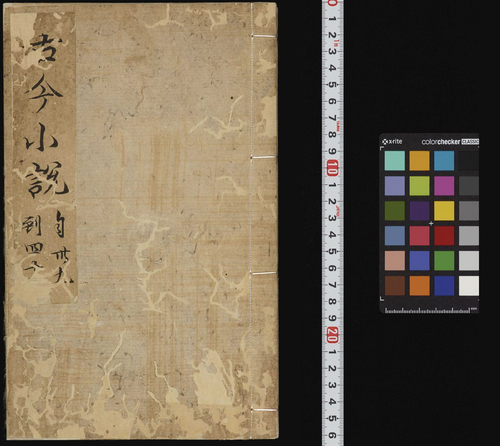 古今小說
自卅九
到四十
0 1 2 3 4 5 6 7 8 9 10 1 2 3 4 5 6 7 8 9 20 1 2 3 4 5 6
x-rite colorchecker CLASSIC
mm